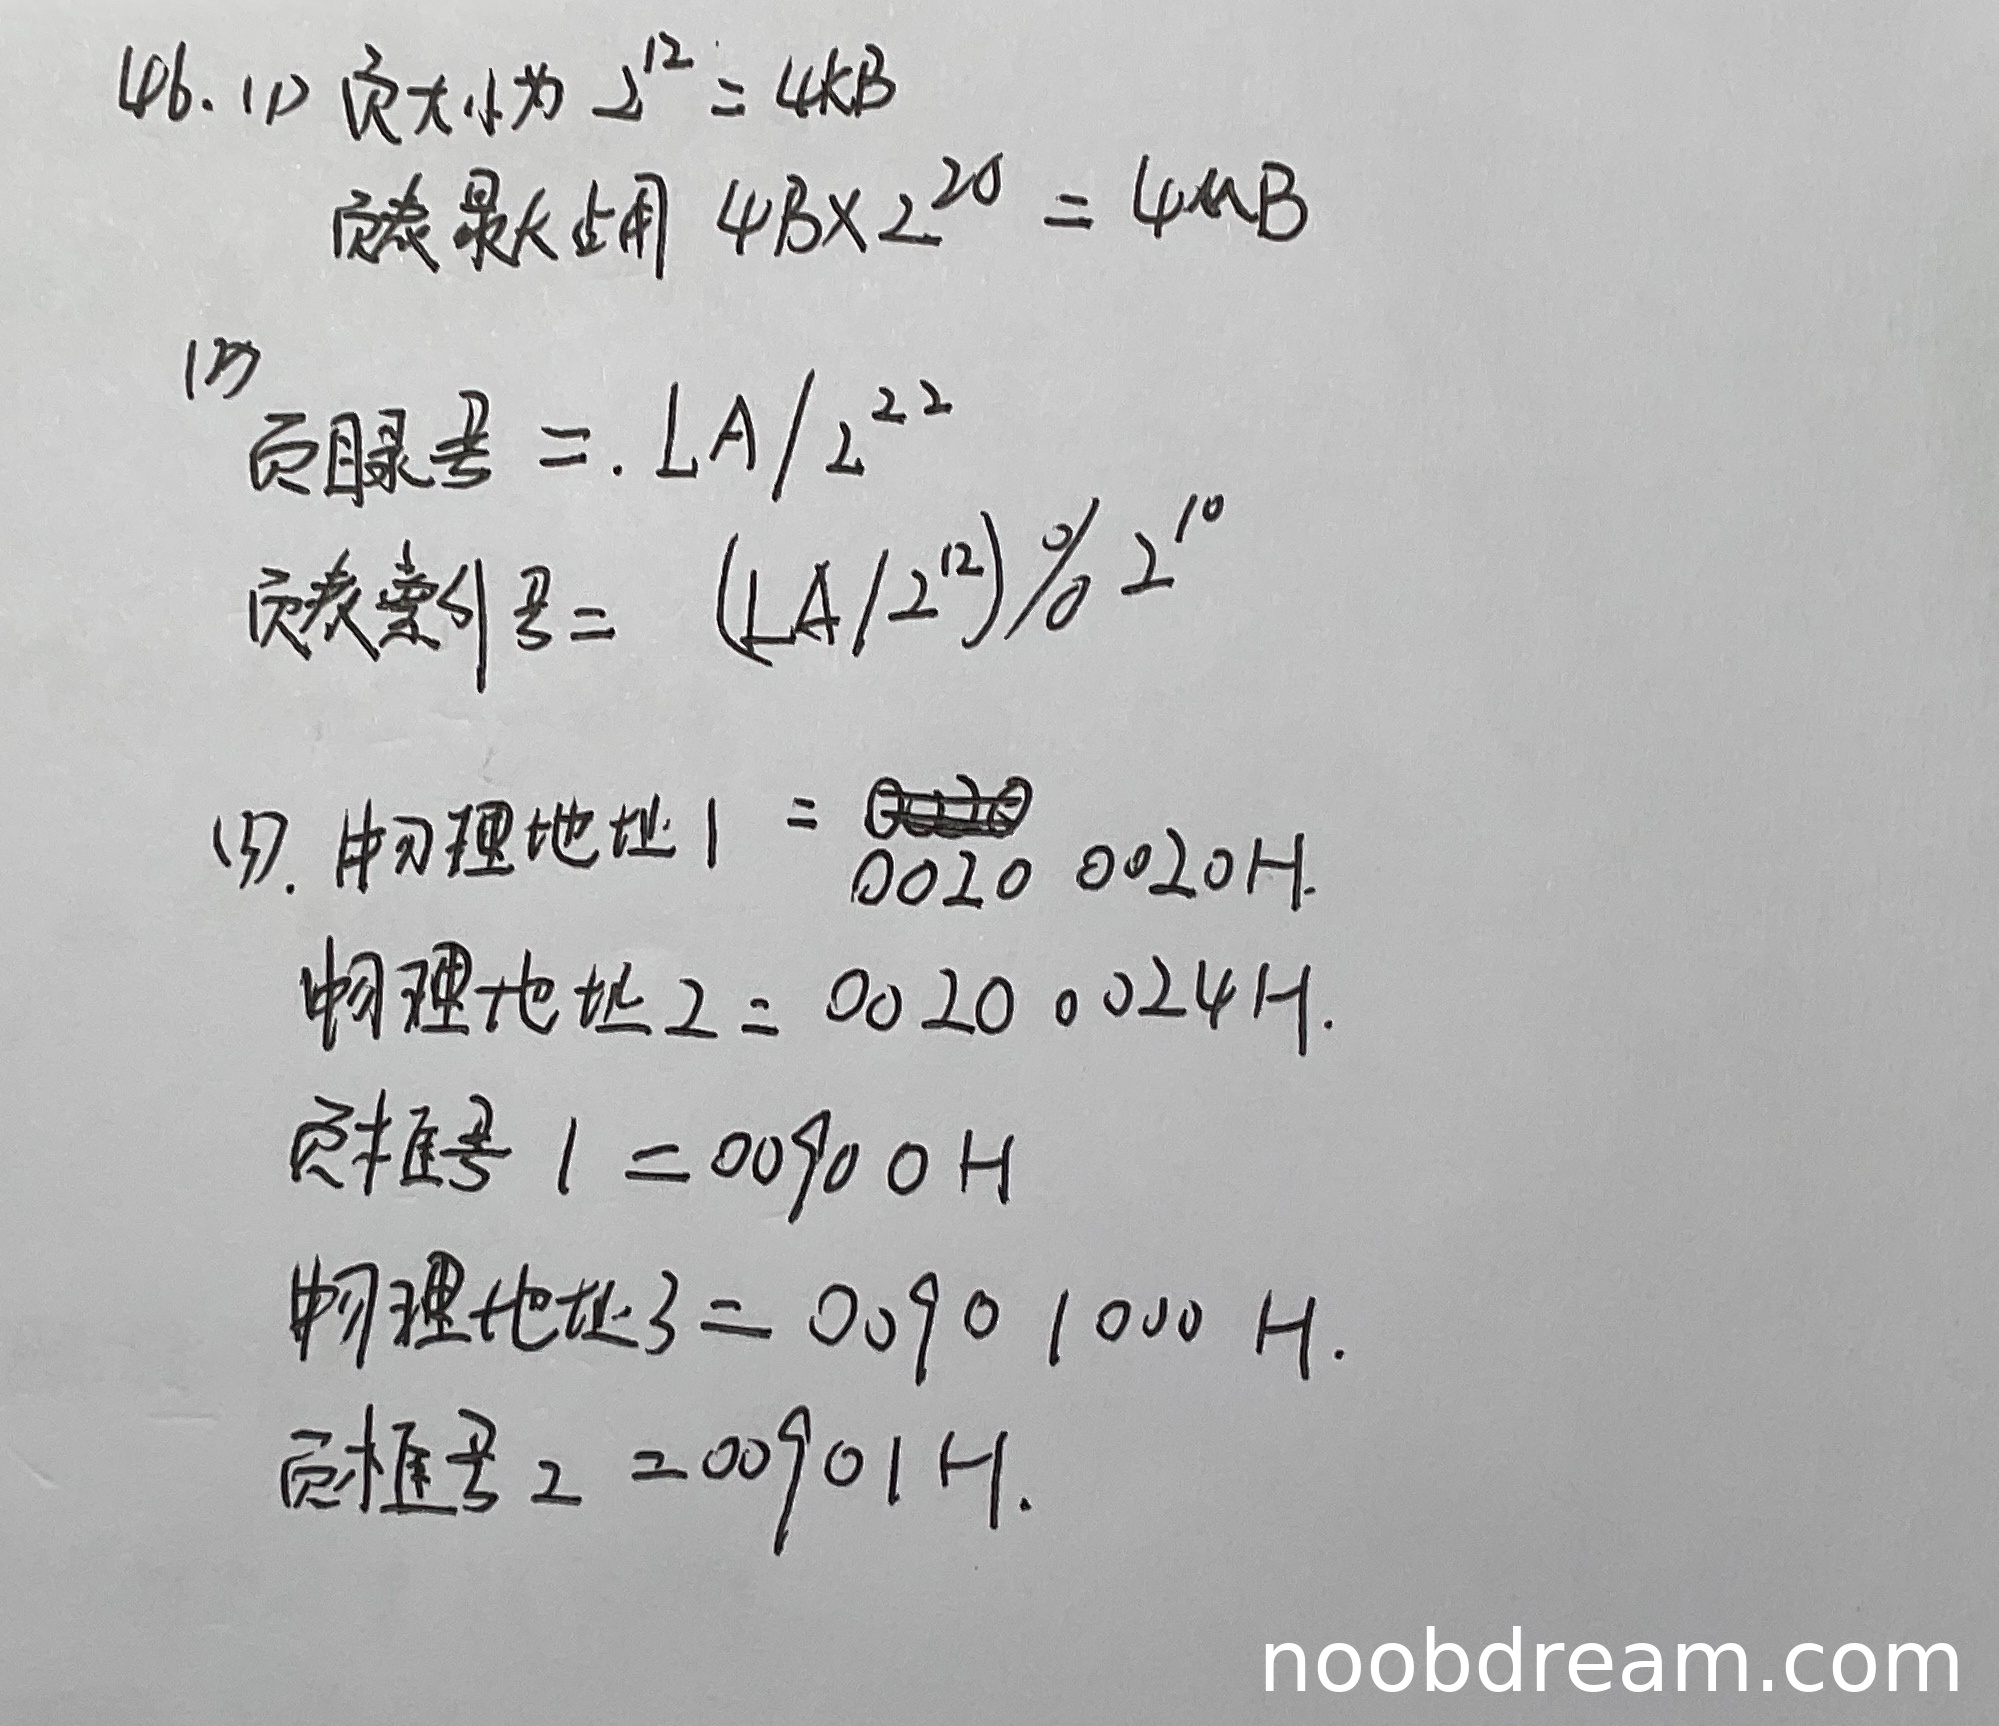 46. (1) 页大小为 2^12 = 4KB
页表最大占用 4B×2^20 = 4MB
(2)
页目录号 =. LA/2^22
页表索引号 = (LA/2^12)%2^10
(3). 物理地址1 = 0020 0020H.
物理地址2 = 0020 0024H.
页框号 1 = 00900H
物理地址3 = 0090 1000 H.
页框号 2 = 00901H.
noobdream.com